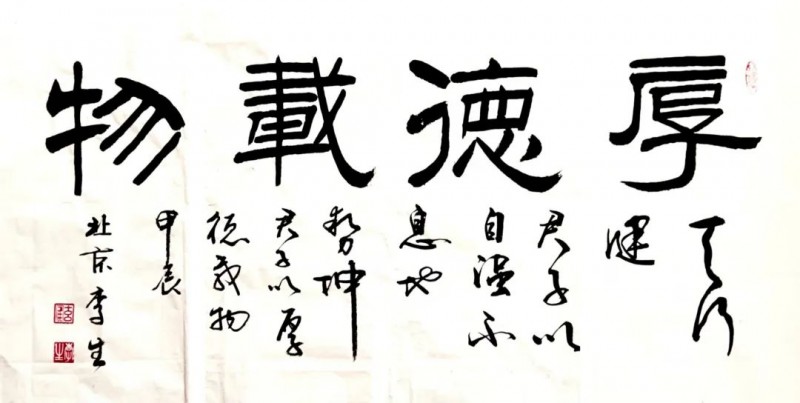 厚德載物
天行
健
君子以
自强不
息地
势坤
君子以厚
德载物
甲辰
北京李生